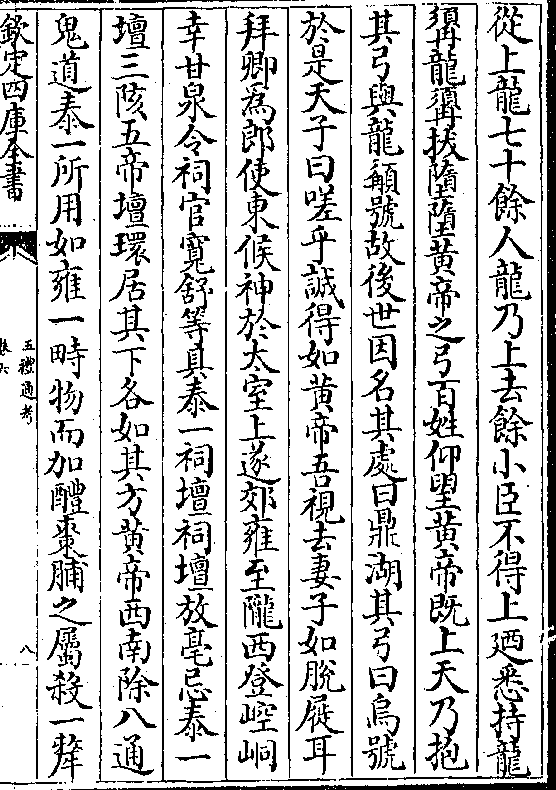 從上龍七十餘人龍乃上去餘小臣不得上廼悉持龍
髯龍髯拔墮墮黃帝之弓百姓仰望黃帝既上天乃抱
其弓與龍髯號故後世因名其處曰鼎湖其弓曰烏號
於是天子曰嗟乎誠得如黃帝吾視去妻子如脫屣耳
拜卿為郎使東候神於太室上遂郊雍至隴西登崆峒
幸甘泉令祠官寛舒等具泰一祠壇祠壇放亳忌泰一
壇三陔五帝壇環居其下各如其方黃帝西南除八通
鬼道泰一所用如雍一畤物而加醴棗脯之屬殺一犛
欽定四庫全書
五禮通考
卷六
八